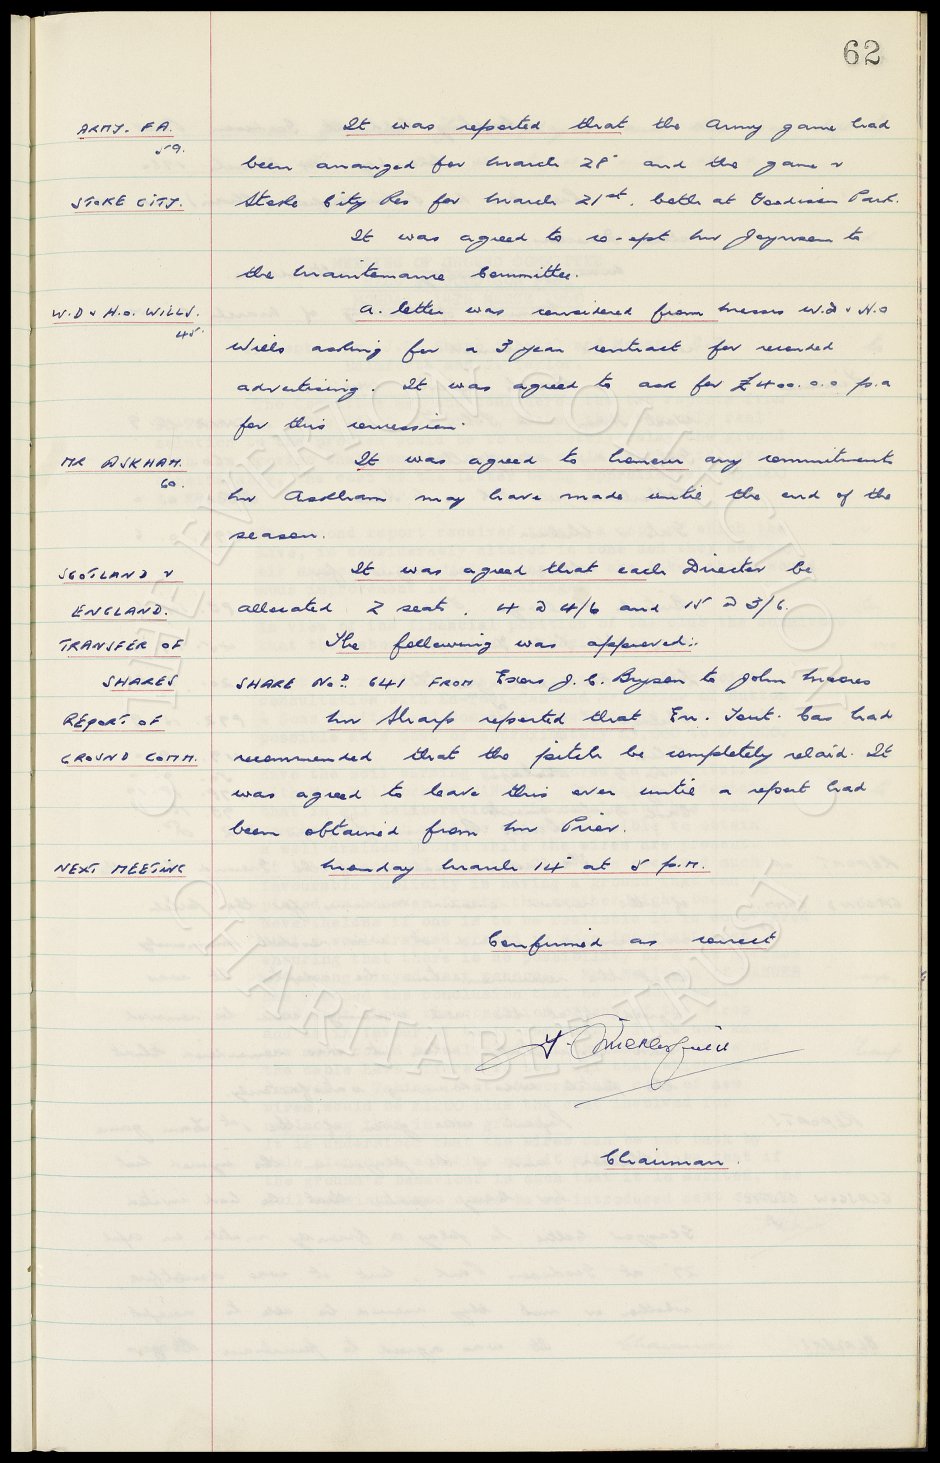 62
ARMY. F.A. It was reported that the Army game had
59.
been arranged for March 28 and the game v
STOKE CITY. Stoke City Res for March 21st. both at Goodison Park.
It was agreed to co-opt Mr Joynson to
the Maintenance Committee.
W.D & H.O. WILLS. A. letter was considered from Messrs W.D & H.O
45.
Wills asking for a 3 year contract for recorded
advertising. It was agreed to ask for £400.0.0 p.a
for this concession.
MR ASKHAM. It was agreed to honour any commitments
60.
Mr Askham may have made until the end of the
season.
SCOTLAND v It was agreed that each Director be
ENGLAND. allocated 2 seats. 4 @ 4/6 and 15 @ 3/6.
TRANSFER OF The following was approved:
SHARES SHARE No. 641 FROM Exors J. C. Bryson to John Moores
REPORT OF Mr Sharp reported that En. Tout. Cas had
GROUND COMM. recommended that the pitch be completely relaid. It
was agreed to leave this over until a report had
been obtained from Mr Prior.
NEXT MEETING Monday March 14 at 5 p.m.
Confirmed as correct
Chairman.
THE EVERTON COLLECTION
CHARITABLE TRUST